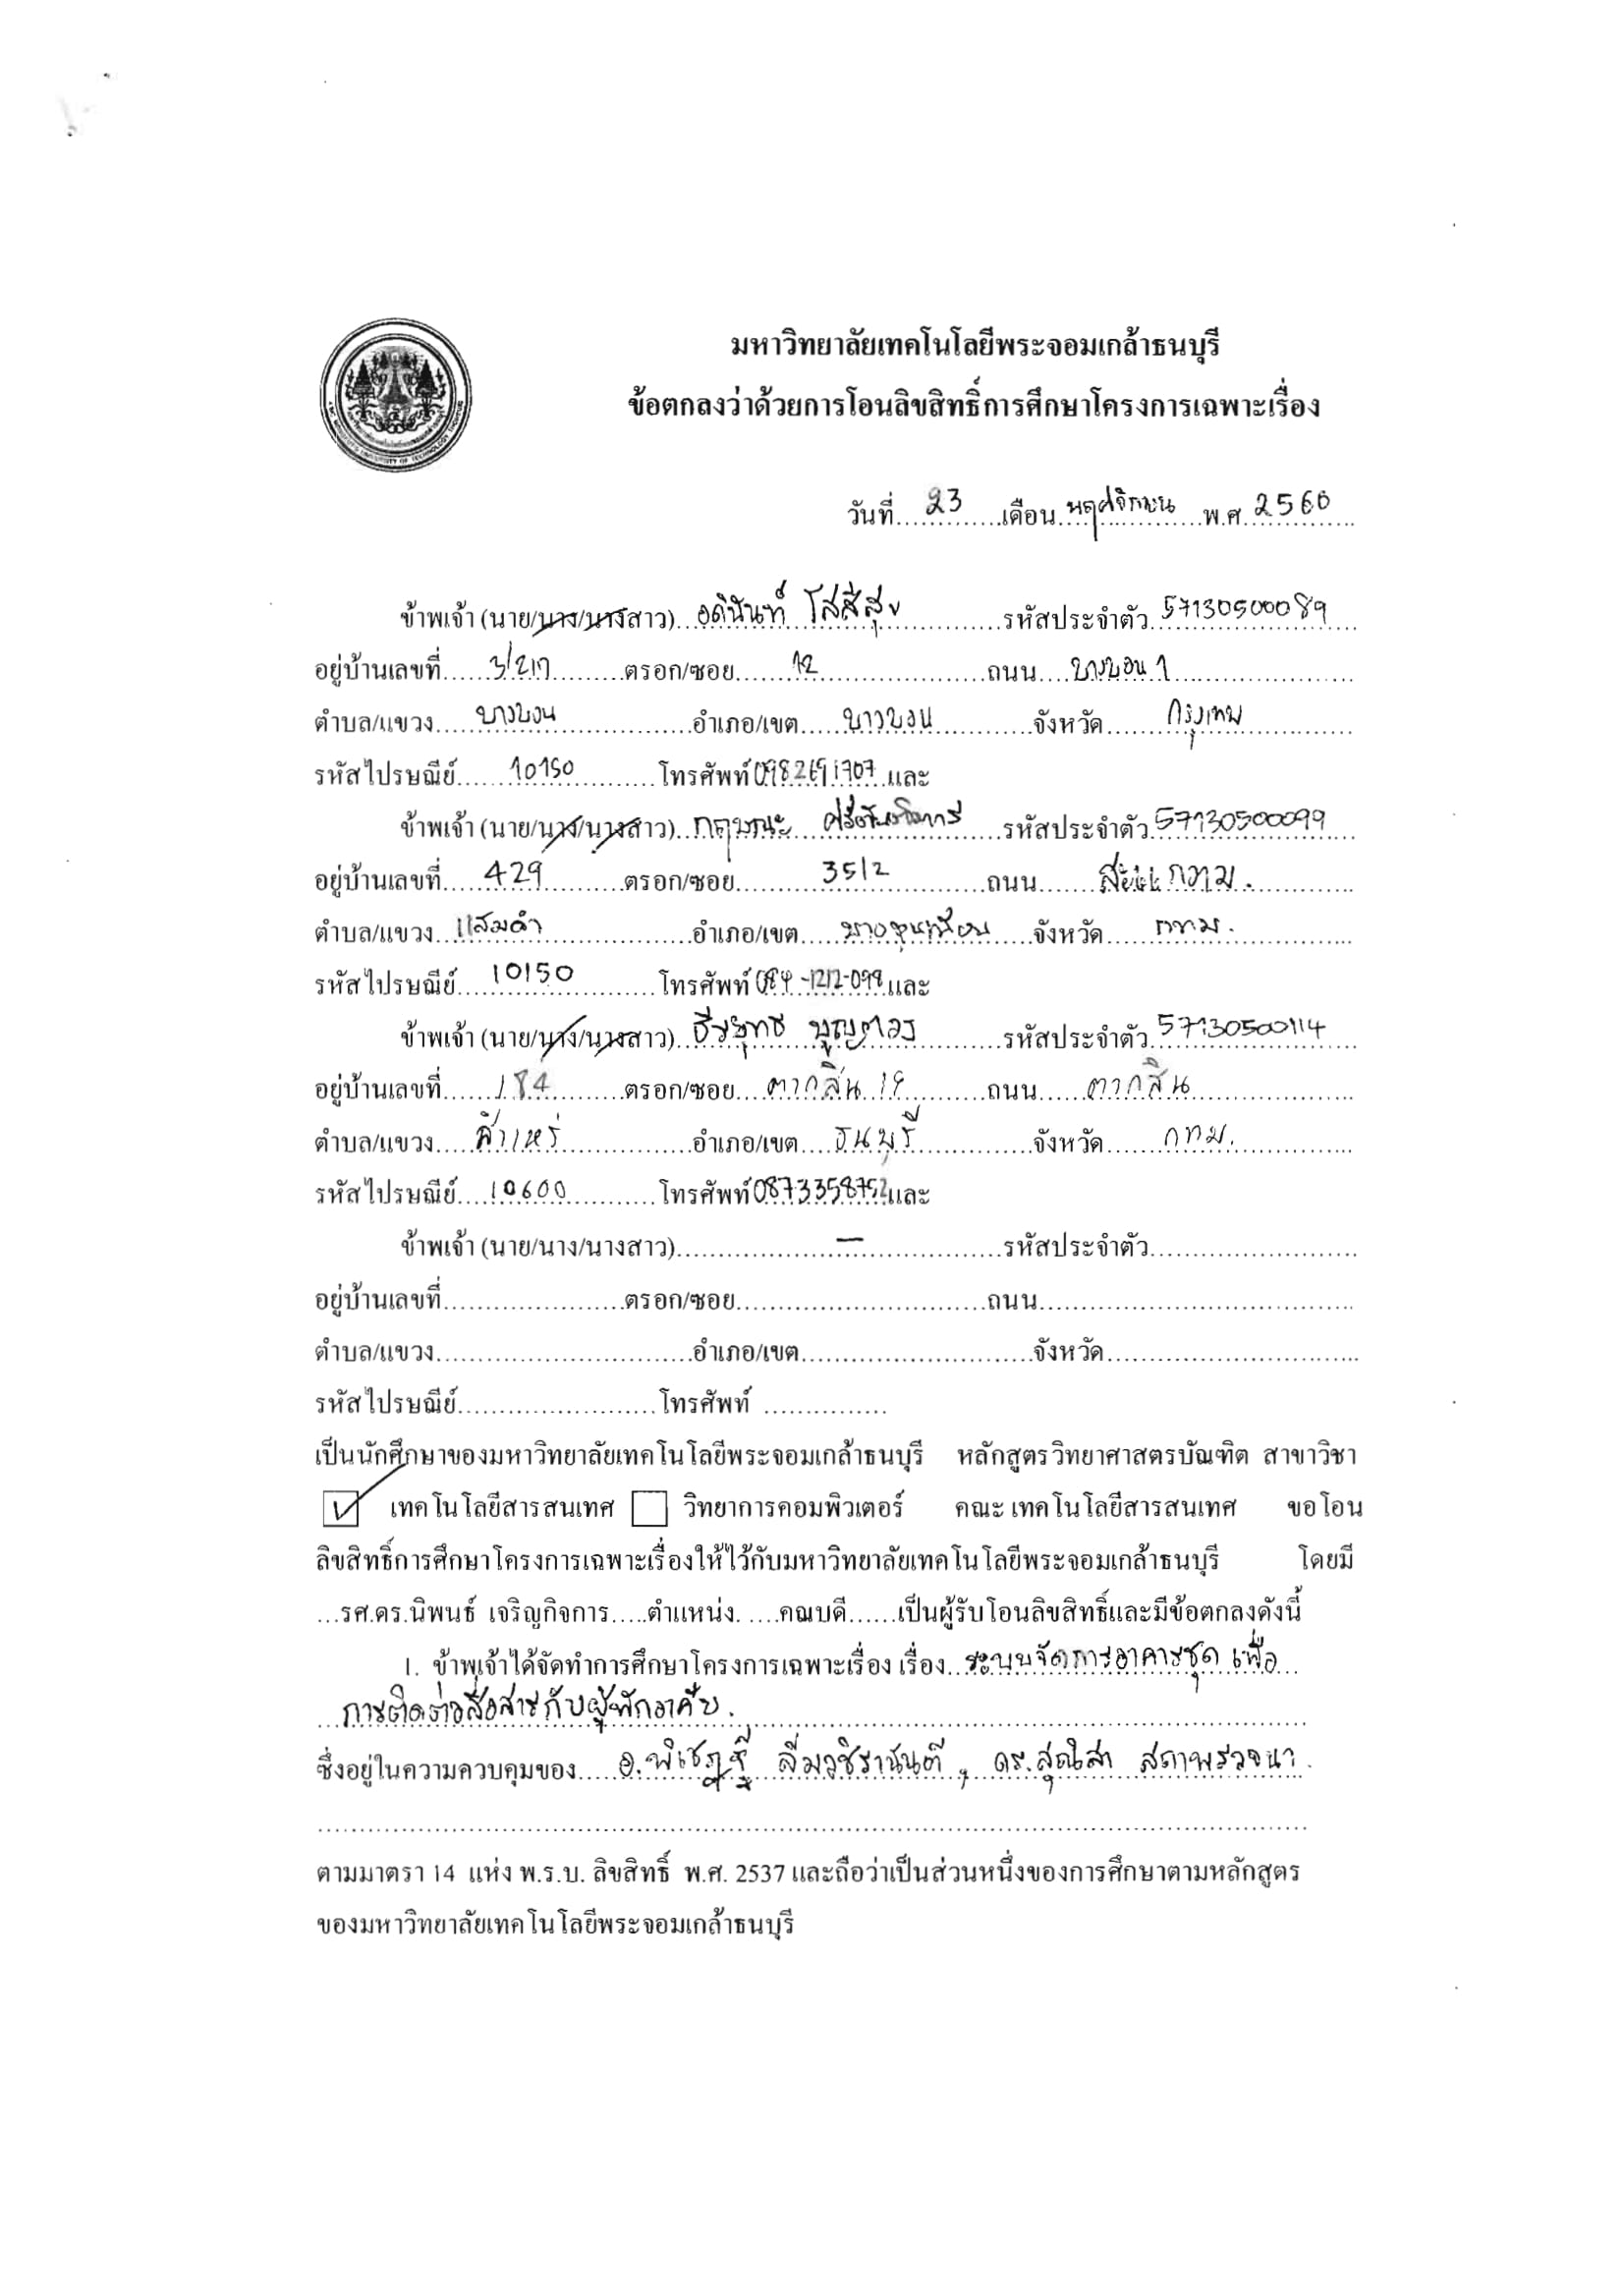 มหาวิทยาลัยเทคโนโลยีพระจอมเกล้าธนบุรี
ข้อตกลงว่าด้วยการโอนลิขสิทธิ์การศึกษาโครงการเฉพาะเรื่อง
วันที่ 23 เดือน พฤศจิกายน พ.ศ. 2560
ข้าพเจ้า (นาย/นาง/นางสาว) อตินันท์ โสสีสุข รหัสประจำตัว 57130500089
อยู่บ้านเลขที่ 3/217 ตรอก/ซอย 12 ถนน บางบอน 1
ตำบล/แขวง บางบอน อำเภอ/เขต บางบอน จังหวัด กรุงเทพ
รหัสไปรษณีย์ 10150 โทรศัพท์ และ
ข้าพเจ้า (นาย/นาง/นางสาว) กฤษณะ รหัสประจำตัว 57130500099
อยู่บ้านเลขที่ 429 ตรอก/ซอย 35/2 ถนน
ตำบล/แขวง แสมดำ อำเภอ/เขต บางขุนเทียน จังหวัด กทม.
รหัสไปรษณีย์ 10150 โทรศัพท์ และ
ข้าพเจ้า (นาย/นาง/นางสาว) ธีรยุทธ บุญตวง รหัสประจำตัว 57130500114
อยู่บ้านเลขที่ 184 ตรอก/ซอย ตากสิน 19 ถนน ตากสิน
ตำบล/แขวง สำเหร่ อำเภอ/เขต ธนบุรี จังหวัด กทม.
รหัสไปรษณีย์ 10600 โทรศัพท์ 0873358752 และ
ข้าพเจ้า (นาย/นาง/นางสาว) – รหัสประจำตัว
อยู่บ้านเลขที่ ตรอก/ซอย ถนน
ตำบล/แขวง อำเภอ/เขต จังหวัด
รหัสไปรษณีย์ โทรศัพท์
เป็นนักศึกษาของมหาวิทยาลัยเทคโนโลยีพระจอมเกล้าธนบุรี หลักสูตรวิทยาศาสตรบัณฑิต สาขาวิชา
เทคโนโลยีสารสนเทศ วิทยาการคอมพิวเตอร์ คณะ เทคโนโลยีสารสนเทศ ขอโอน
ลิขสิทธิ์การศึกษาโครงการเฉพาะเรื่องให้ไว้กับมหาวิทยาลัยเทคโนโลยีพระจอมเกล้าธนบุรี โดยมี
...รศ.ดร.นิพนธ์ เจริญกิจการ.....ตำแหน่ง.....คณบดี......เป็นผู้รับโอนลิขสิทธิ์และมีข้อตกลงดังนี้
1. ข้าพเจ้าได้จัดทำการศึกษาโครงการเฉพาะเรื่อง เรื่อง ระบบจัดการอาคารชุด เพื่อ
การติดต่อสื่อสารกับผู้พักอาศัย.
ซึ่งอยู่ในความควบคุมของ อ.พิเชฏฐ์ ลิ่มวชิรานันต์ , ดร.สุณิสา สถาพรวจนา
ตามมาตรา 14 แห่ง พ.ร.บ. ลิขสิทธิ์ พ.ศ. 2537 และถือว่าเป็นส่วนหนึ่งของการศึกษาตามหลักสูตร
ของมหาวิทยาลัยเทคโนโลยีพระจอมเกล้าธนบุรี